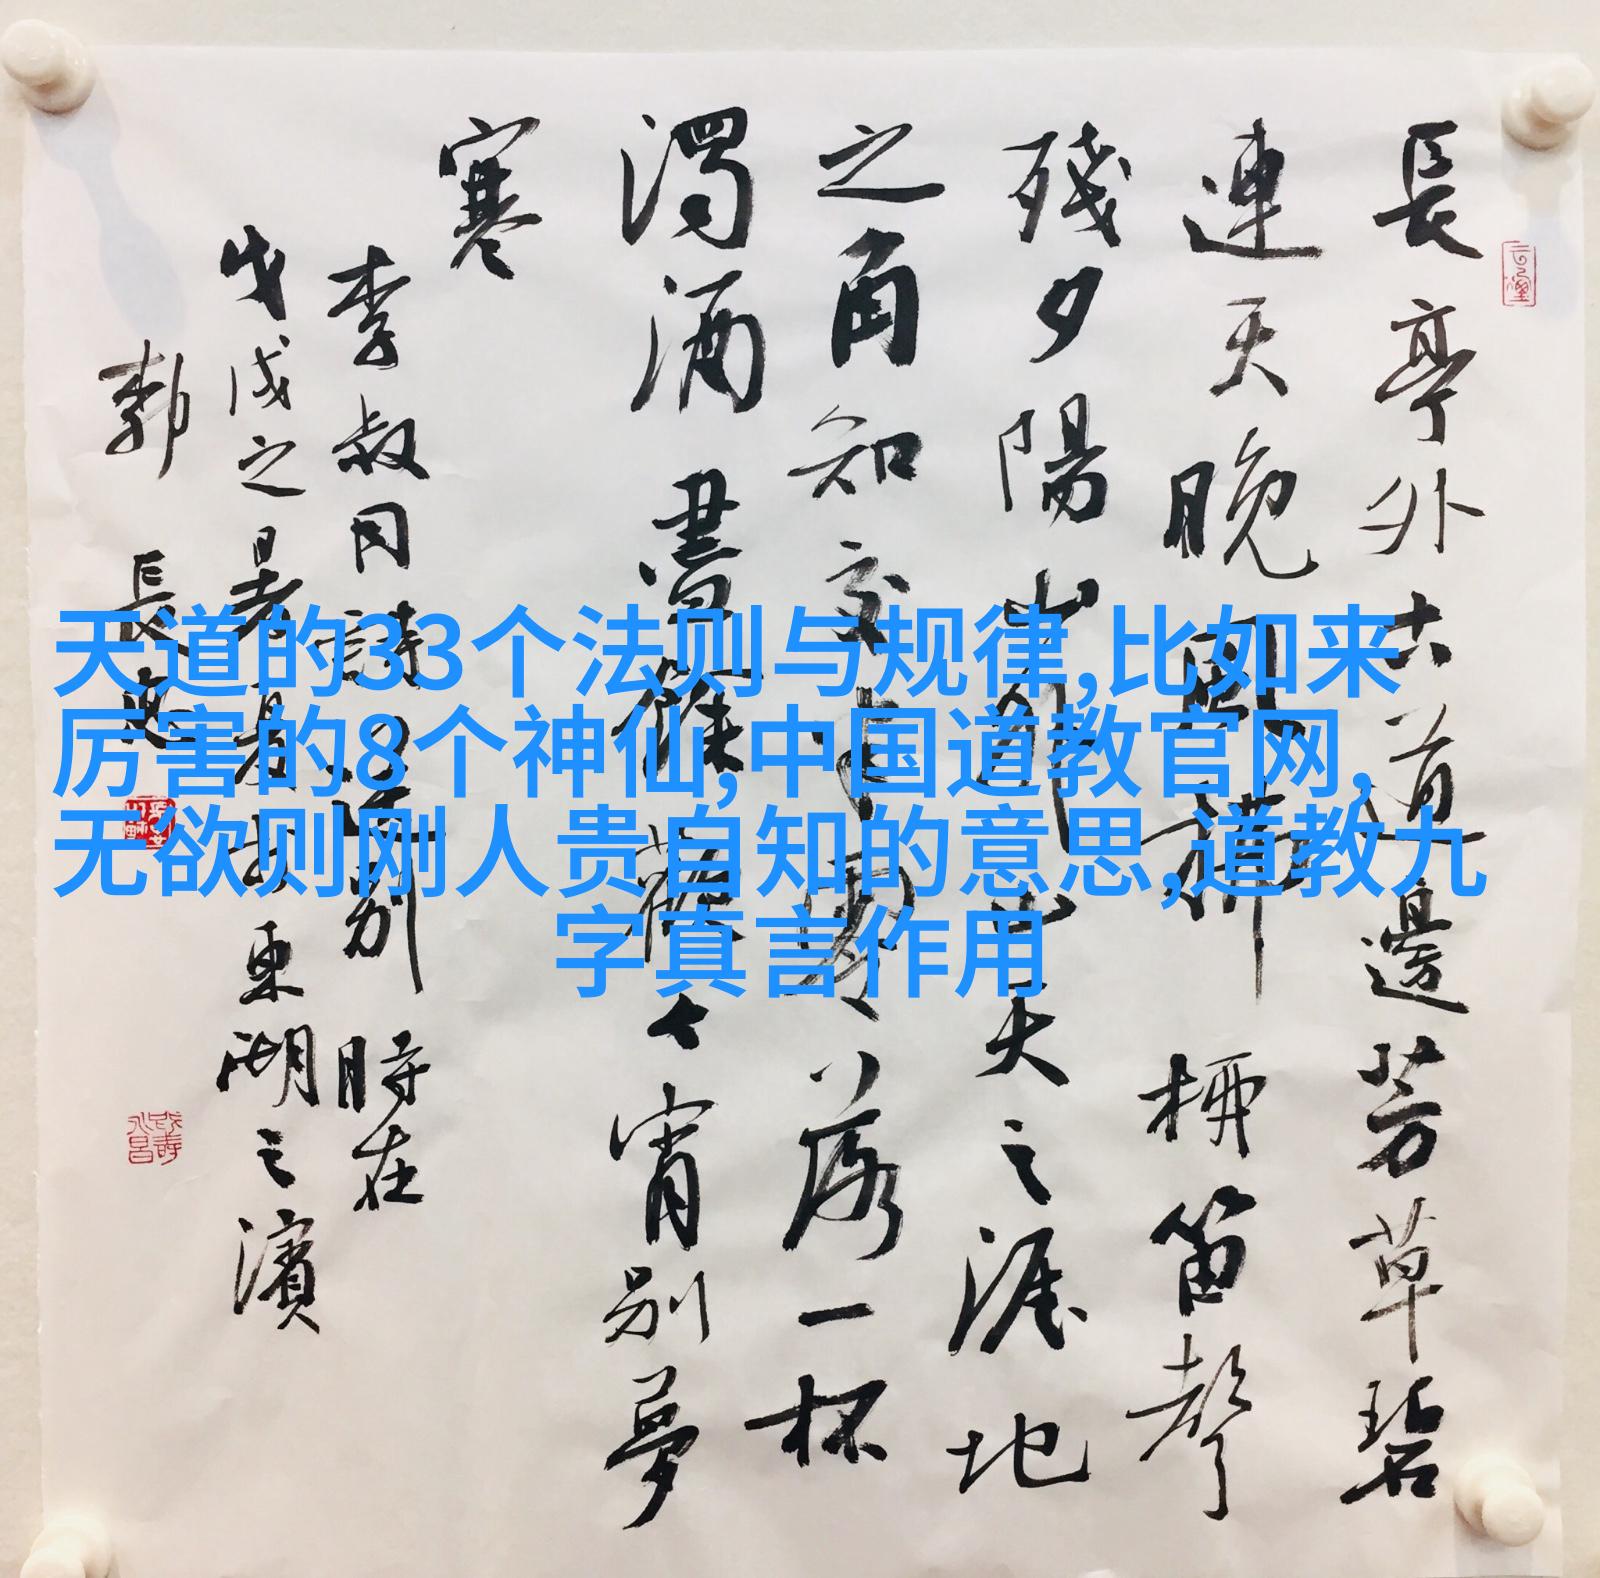 長亭外古道邊芳草碧
連天晚風拂柳笛聲
殘夕陽山外山天之涯地
之角知交半零落一杯
濁酒盡餘歡今宵別夢
寒
李叔同詩送別 時在
戊戌之暑 東湖之濱
郭 長
天道的33个法则与规律,比如来
厉害的8个神仙,中国道教官网,
无欲则刚人贵自知的意思,道教九
字真言作用